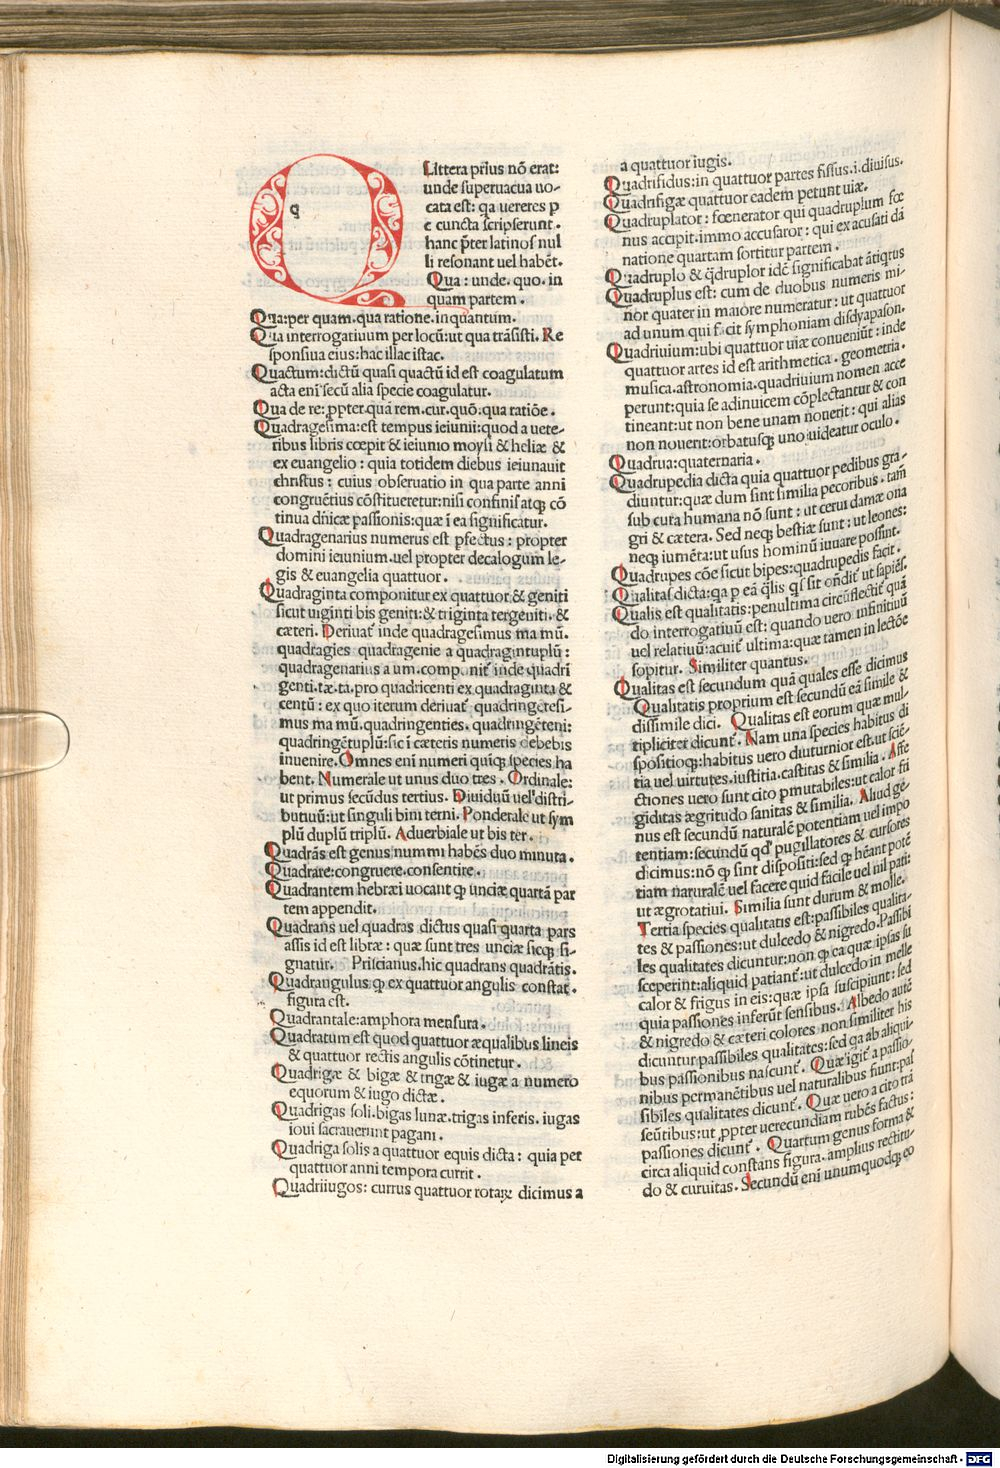 q
Littera prius nõ erat:
unde superuacua uo-
cata est: qa uereres p
e cuncta scripserunt.
hanc p̃ter latinos nul
li resonant uel habẽt.
Qua: unde. quo. in
quam partem.
Qua: per quam. qua ratione. in quantum.
Qua interrogatiuum per locũ: ut qua trãsisti. Re
sponsiua eius: hac illac istac.
Quactum: dictũ quasi quactũ id est coagulatum
acta eni secũ alia specie coagulatur.
Qua de re: ꝓpter. quã rem. cur. quõ. qua ratiõe.
Quadragesima: est tempus ieiunii: quod a uete-
ribus libris cœpit & ieiunio moysi & heliæ &
ex euangelio: quia totidem diebus ieiunauit
christus: cuius obseruatio in qua parte anni
congruẽtius cõstitueretur: nisi confinis atqꝫ cõ
tinua dñicæ passionis: quæ i ea significatur.
Quadragenarius numerus est ꝑfectus: propter
domini ieiunium. uel propter decalogum le-
gis & euangelia quattuor.
Quadraginta componitur ex quattuor & geniti
sicut uiginti bis geniti: & triginta tergeniti. &
cæteri. Deriuat̃ inde quadragesimus ma mũ.
quadragies quadragenie a quadragintuplũ:
quadragenarius a um. componit̃ inde quadri
genti. tæ. ta. pro quadricenti ex quadraginta &
centũ: ex quo iterum deriuat̃ quadringẽtesi-
mus ma mũ. quadringenties. quadringẽteni:
quadringẽtuplũ: sic i cæteris numeris debebis
inuenire. Omnes eni numeri quiqꝫ species ha
bent. Numerale ut unus duo tres. Ordinale:
ut primus secũdus tertius. Diuiduũ uel distri-
butuũ: ut singuli bini terni. Ponderale ut sym
plũ duplũ triplũ. Aduerbiale ut bis ter.
Quadrãs est genus nummi habẽs duo minuta.
Quadrare: congruere. consentire.
Quadrantem hebræi uocant ꝙ unciæ quartã par
tem appendit.
Quadrans uel quadras dictus quasi quarta pars
assis id est libræ: quæ sunt tres unciæ sicqꝫ si-
gnatur. Priscianus. hic quadrans quadrãtis.
Quadrangulus. ꝙ ex quattuor angulis constat.
figura est.
Quadrantale: amphora mensura.
Quadratum est quod quattuor æqualibus lineis
& quattuor rectis angulis cõtinetur.
Quadrigæ & bigæ & trigæ & iugæ a numero
equorum & iugo dictæ.
Quadrigas soli. bigas lunæ. trigas inferis. iugas
ioui sacrauerunt pagani.
Quadriga solis a quattuor equis dicta: quia per
quattuor anni tempora currit.
Quadriiugos: currus quattuor rotaꝝ dicimus a
a quattuor iugis.
Quadrifidus: in quattuor partes fissus. i. diuisus.
Quadrifigæ quattuor eadem petunt uiæ.
Quadruplator: fœnerator qui quadruplum fœ
nus accipit. immo accusator: qui ex acusati dã
natione quartam sortitur partem.
Quadruplo & q̃druplor idẽ significabat ãtiqtus
Quadruplus est: cum de duobus numeris mi-
nor quater in maiore numeratur: ut quattuor
ad unum qui facit symphoniam disdyapason.
Quadriuium: ubi quattuor uiæ conueniũt: inde
quattuor artes id est arithmetica. geometria.
musica. astronomia. quadriuium nomen acce
perunt: quia se adinuicem cõplectantur & con
tineant: ut non bene unam nouerit: qui alias
non nouerit: orbatusqꝫ uno uideatur oculo.
Quadrua: quaternaria.
Quadrupedia dicta quia quattuor pedibus gra-
diuntur: quæ dum sint similia pecoribus. tam̃
sub cura humana nõ sunt: ut cerui damæ ona
gri & cætera. Sed neqꝫ bestiæ sunt: ut leones:
neqꝫ iumẽta: ut usus hominũ iuuare possint.
Quadrupes cõe sicut bipes: quadrupedis facit.
Qualitas dicta: qa p eã q̃lis qs sit ondit̃ ut sapiẽs.
Qualis est qualitatis: penultima circũflectit̃ quã
do interrogatiuũ est: quando uero infinitiuũ
uel relatiuũ: acuit̃ ultima: quæ tamen in lectõe
sopitur. Similiter quantus.
Qualitas est secundum quã quales esse dicimus
Qualitatis proprium est secundũ eã simile &
dissimile dici. Qualitas est eorum quæ mul
tipliciter dicunt̃. Nam una species habitus di
spositioqꝫ: habitus uero diuturnior est. ut sciẽ-
tia uel uirtutes. iustitia. castitas & similia. Affe
ctiones uero sunt cito ꝑmutabiles: ut calor fri
giditas ægritudo sanitas & similia. Aliud ge-
nus est secundũ naturalẽ potentiam uel impo
tentiam: secundũ qd̕ pugillatores & cursores
dicimus: nõ ꝙ sint dispositi: sed ꝙ hẽant potẽ
tiam naturalẽ uel facere quid facile uel nil pati:
ut ægrotatiui. Similia sunt durum & molle.
Tertia species qualitatis est: passibiles qualita-
tes & passiones: ut dulcedo & nigredo. Passibi
les qualitates dicuntur: non ꝙ ea quæ ipsas su
sceperint: aliquid patiant̃: ut dulcedo in melle
calor & frigus in eis: quæ ipsa suscipiunt: sed
quia passiones inferũt sensibus. Albedo autẽ
& nigredo & cæteri colores non similiter his
dicuntur passibiles qualitates: sed qa ab aliqui-
bus passionibus nascunt̃. Quæ igit̃ a passio-
nibus permanẽtibus uel naturalibus fiunt: pas
sibiles qualitates dicunt̃. Quæ uero a cito trã
seũtibus: ut ꝓpter uerecundiam rubẽs factus:
passiones dicunt̃. Quartum genus forma &
circa aliquid constans figura. amplius rectitu-
do & curuitas. Secundũ eni unumquodqꝫ eo
Digitalisierung gefördert durch die Deutsche Forschungsgemeinschaft - DFG